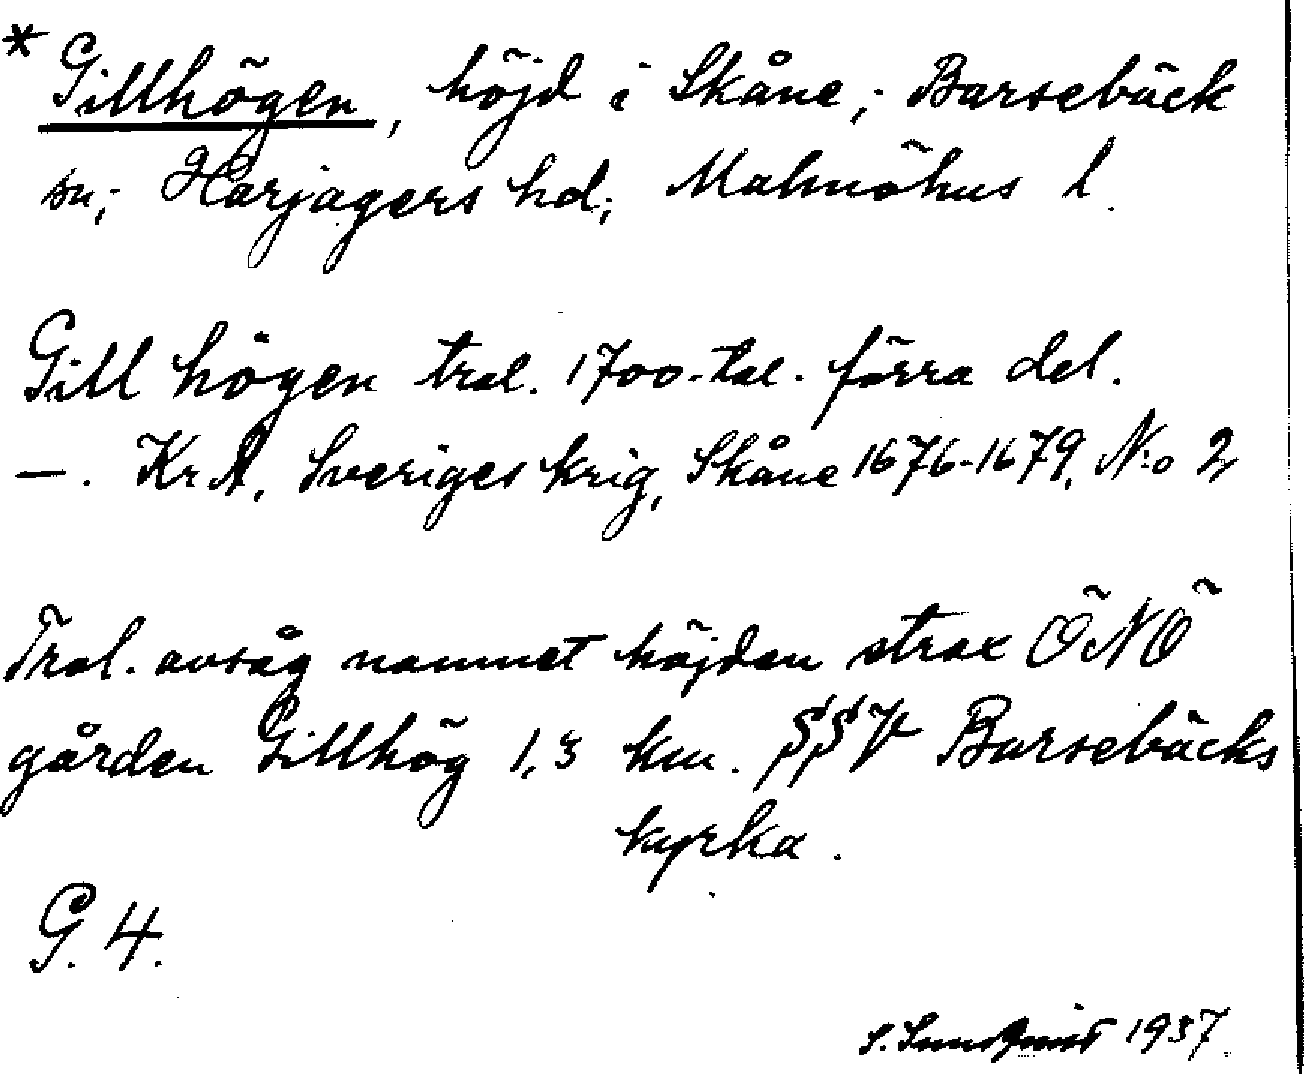 * Gillhögen, höjd i Skåne; Barsebäck
sn; Harjagers hd; Malmöhus l.
Gill högen trol. 1700-tal. förra del.
—. KrA, Sveriges krig, Skåne 1676-1679, N:o 2
Trol. avsåg namnet höjden strax ÖNÖ
gården Gillhög 1,3 km. SSV Barsebäcks
kyrka.
G. 4.
S. Sundquist 1937.